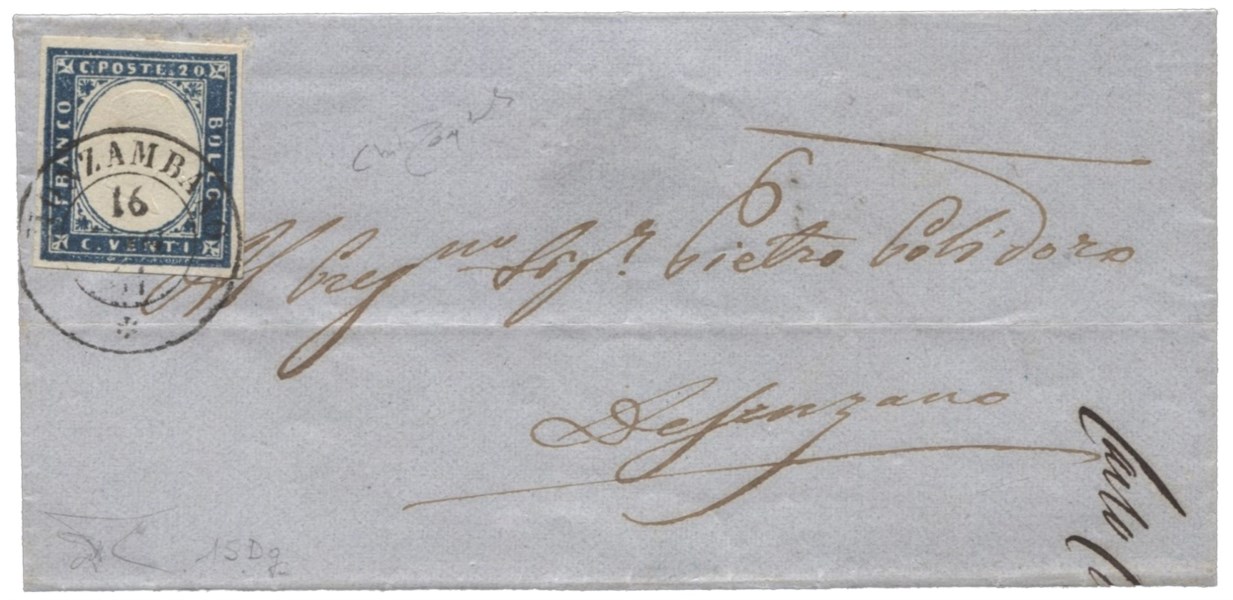 C. POSTE. 20
FRANCO
BOLLO
C. VENTI
ZAMBA
16
Al Preg.mo Sig.r Pietro Polidoro
Desenzano
Carlo
15Dg